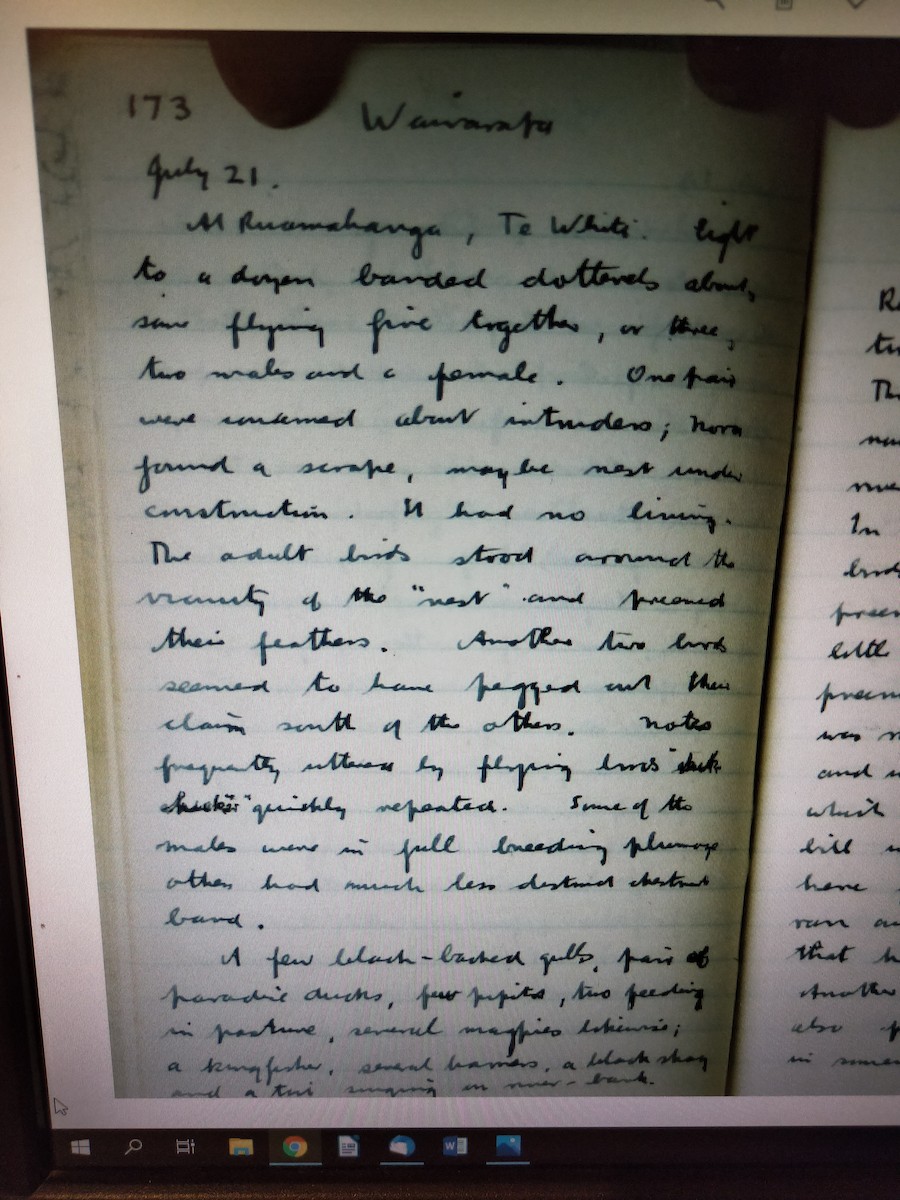 173 Wairarapa
July 21.
At Ruamahanga, Te Whiti. Eight
to a dozen banded dotterels about,
some flying five together, or three,
two males and a female. One pair
were concerned about intruders; Nora
found a scrape, maybe nest under
construction. It had no lining.
The adult birds stood around the
vicinity of the "nest" and preened
their feathers. Another two birds
seemed to have pegged out their
claim south of the others. Notes
frequently uttered by flying birds
quickly repeated. Some of the
males were in full breeding plumage
others had much less distinct chestnut
band.
A few black-backed gulls, pair of
paradise ducks, few pipits, two feeding
in pasture, several magpies likewise;
a kingfisher, several harriers, a black shag
and a tui singing in river-bank.
Re
tu
Th
In
birds
preen
little
preen
was
and
which
bill
have
ran
that h
Another
also
in some